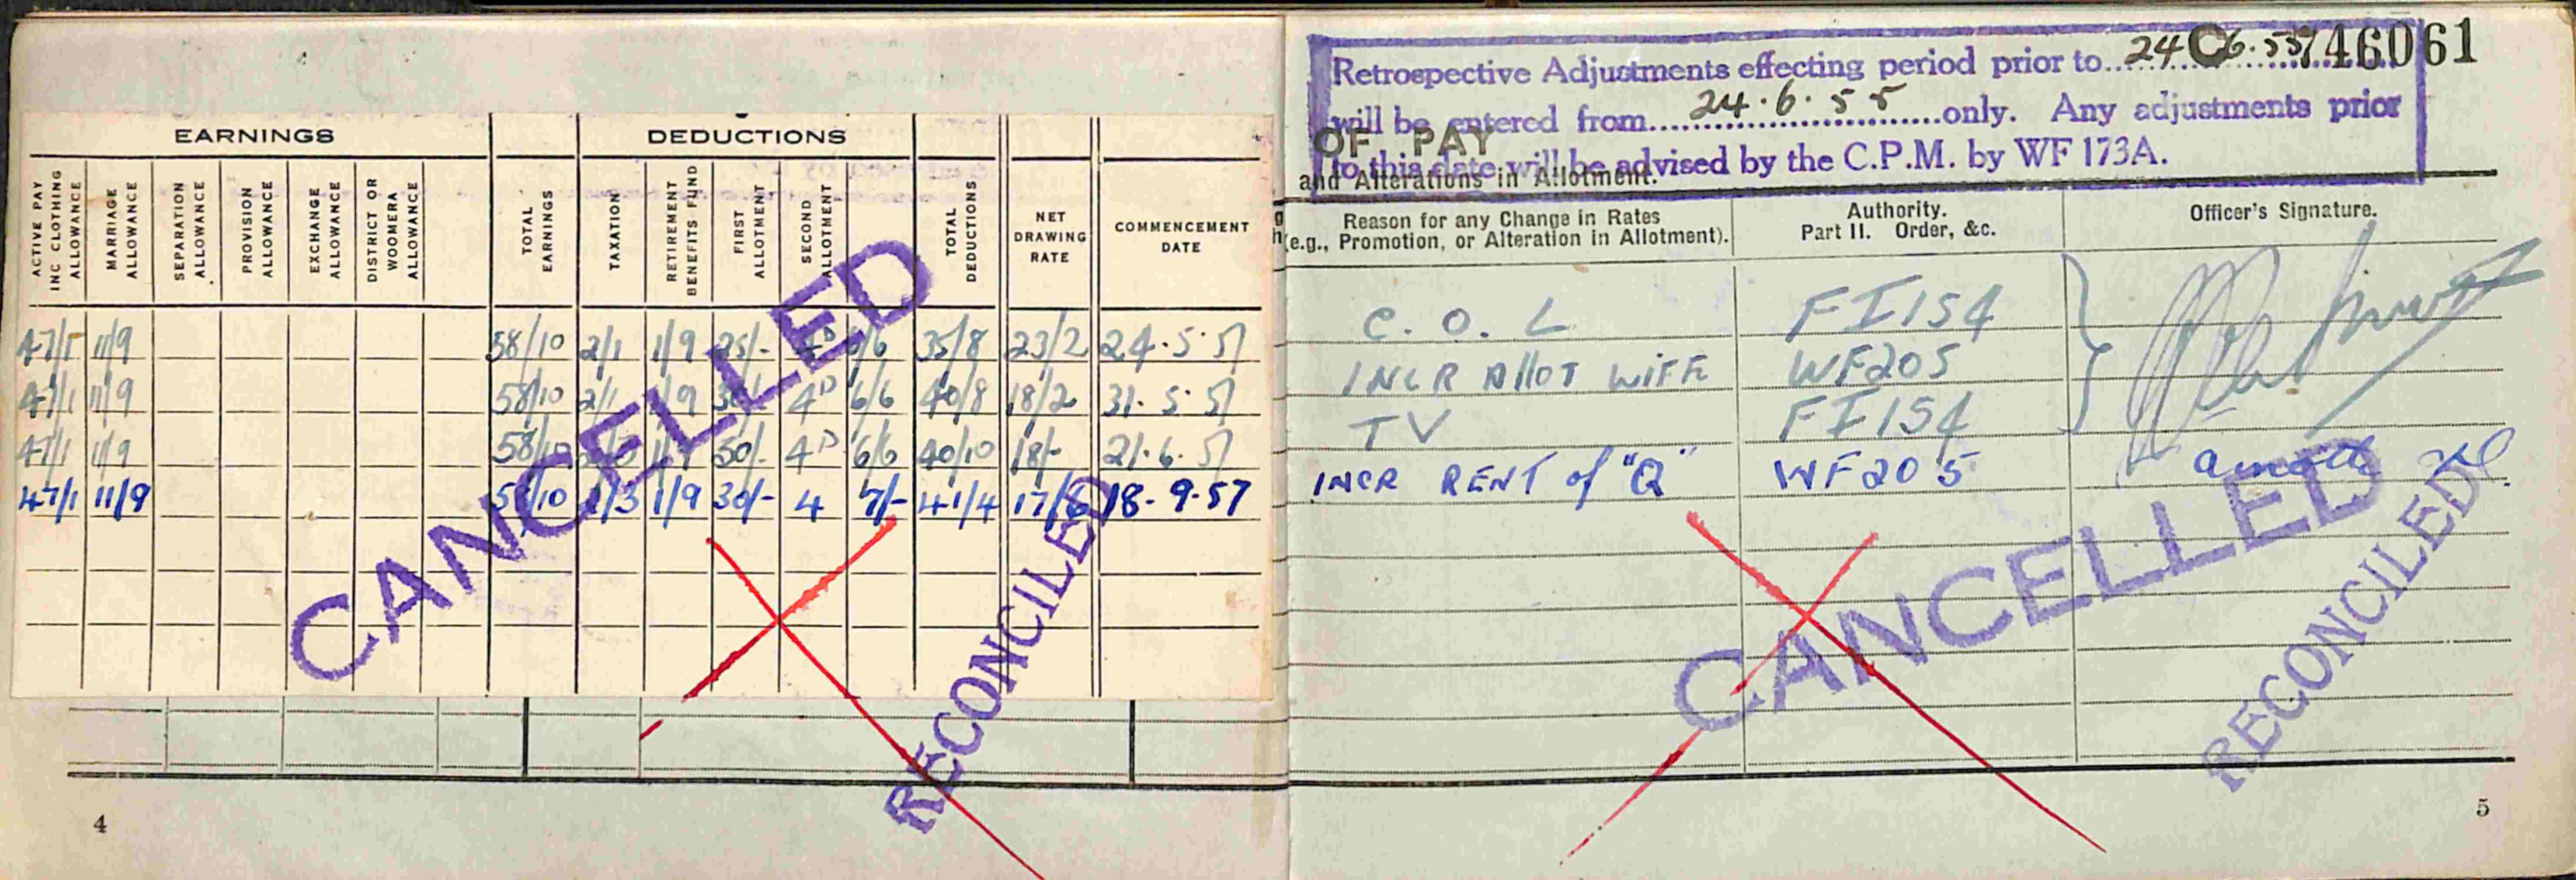 EARNINGS DEDUCTIONS
ACTIVE PAY INC CLOTHING ALLOWANCE
MARRIAGE ALLOWANCE
SEPARATION ALLOWANCE
PROVISION ALLOWANCE
EXCHANGE ALLOWANCE
DISTRICT OR WOOMERA ALLOWANCE
TOTAL EARNINGS
TAXATION
RETIREMENT BENEFITS FUND
FIRST ALLOTMENT
SECOND ALLOTMENT
TOTAL DEDUCTIONS
NET DRAWING RATE
COMMENCEMENT DATE
47/1 11/9 58/10 2/1 1/9 25/- 4D 6/6 35/8 23/2 24.5.57
47/1 11/9 58/10 2/1 1/9 30/- 4D 6/6 40/8 18/2 31.5.57
47/1 11/9 58/10 50/- 4D 6/6 40/10 18/- 21.6.57
47/1 11/9 58/10 1/9 30/- 4 7/- 41/4 17/6 18-9-57
CANCELLED
RECONCILED
4
C746061
Retrospective Adjustments effecting period prior to 24.6.55
will be entered from 24.6.55 only. Any adjustments prior
to this date will be advised by the C.P.M. by WF 173A.
OF PAY
and Alterations in Allotment.
Reason for any Change in Rates
(e.g., Promotion, or Alteration in Allotment).
Authority.
Part II. Order, &c.
Officer's Signature.
C.O.L FI154
INCR ALLOT WIFE WF205
TV FI154
INCR RENT of "Q" WF205
CANCELLED
RECONCILED
5